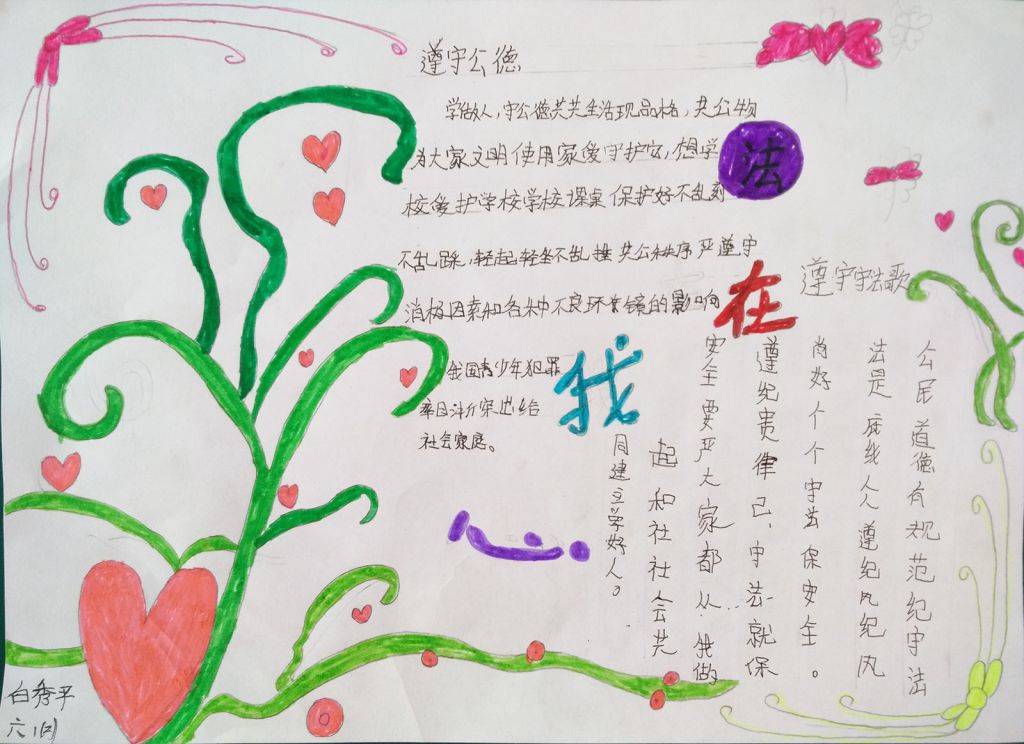 遵守公德
学做人，守公德共共生活现品格，共公物
为大家文明使用家爱守护安，想学
校爱护学校学校课桌保护好不乱刻
不乱踩，轻起轻坐不乱 共公秩序严遵守
消极因素和各种不良环 镜的影响
我国青少年犯罪
率日渐 出给
社会家庭。
法
在
我
心
遵守守法歌
公民道德有规范纪守法
法是 线人人遵纪 纪
尚好个个守法保安全。
遵纪贵律己，守法就保
安全要严大家都从 我做
起和社社会共
同建立学好人。
白秀平
六(1)